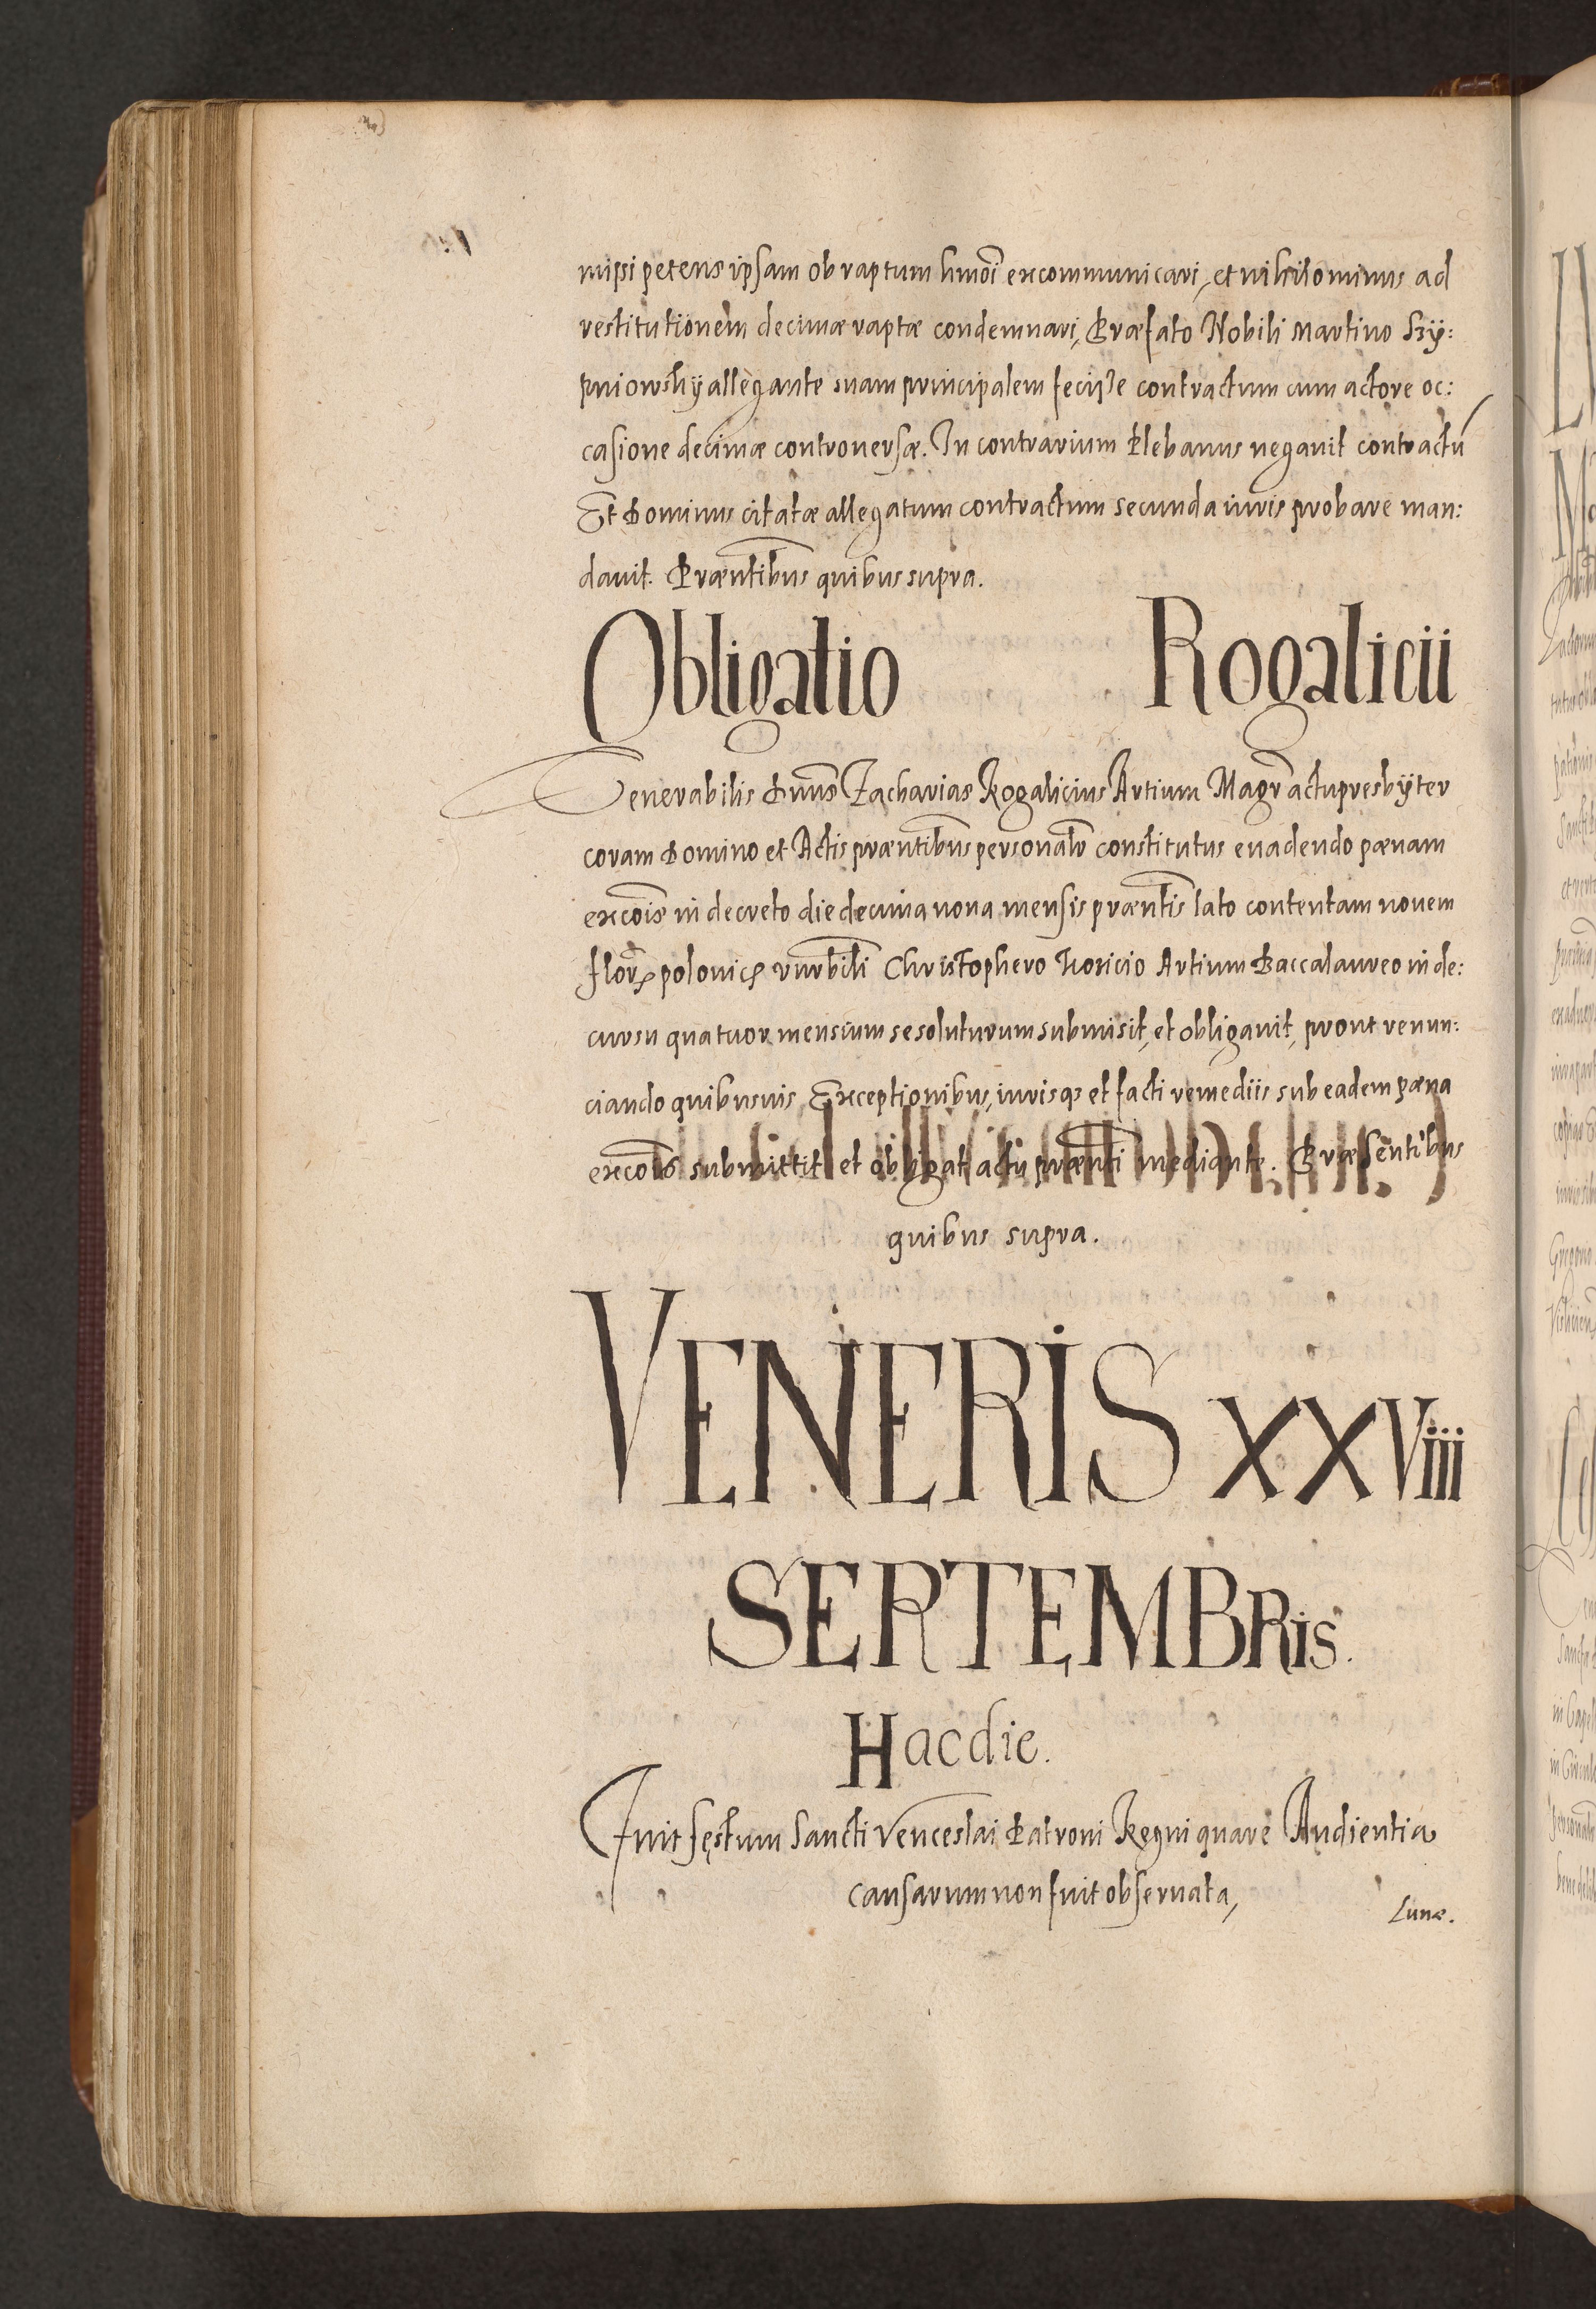 misi petens ipsam ob raptum hmoi excommunicari, et nihilominus ad
restitutionem decimæ raptæ condemnari, Præfato Nobili Martino Szÿ:
pniowskÿ allegante suam principalem fecisse contractum cum actore oc:
casione decimæ controuersæ. In contrarium Plebanus negauit contractũ
Et Dominus citatæ allegatum contractum secunda iuris probare man:
dauit. Præntibus quibus supra.
Obligatio Rogalicii
Venerabilis Dnus Zacharias Rogalicius Artium Magr actu presbÿter
coram Domino et Actis præntibus personalr constitutus euadendo pænam
excois in decreto die decima nona mensis præntis lato contentam nouem
flor polonic vnrbili Christophero Artium Baccalaureo in de:
cursu quatuor mensium se soluturum submisit, et obligauit, prout renun:
ciando quibusuis Exceptionibus, iurisq et facti remediis sub eadem pæna
excois submittit et obligat actu prænti mediante. Præsentibus
quibus supra.
VENERIS XXViii
SEPTEMBRis.
Hac die.
Fuit fęstum Sancti Venceslai Patroni Regni quare Audientia
causarum non fuit obseruata,
Lunæ.